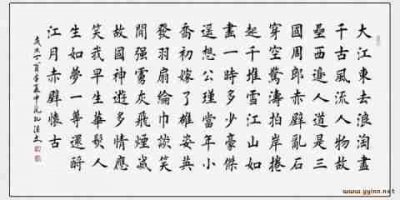 大江東去浪淘盡
千古風流人物故
壘西邊人道是三
國周郎赤壁亂石
穿空驚濤拍岸捲
起千堆雪江山如
畫一時多少豪傑
遥想公瑾當年小
喬初嫁了雄姿英
發羽扇綸巾談笑
間强虜灰飛煙滅
故國神遊多情應
笑我早生華髮人
生如夢一尊還酹
江月赤壁懷古
www.yyinn.net